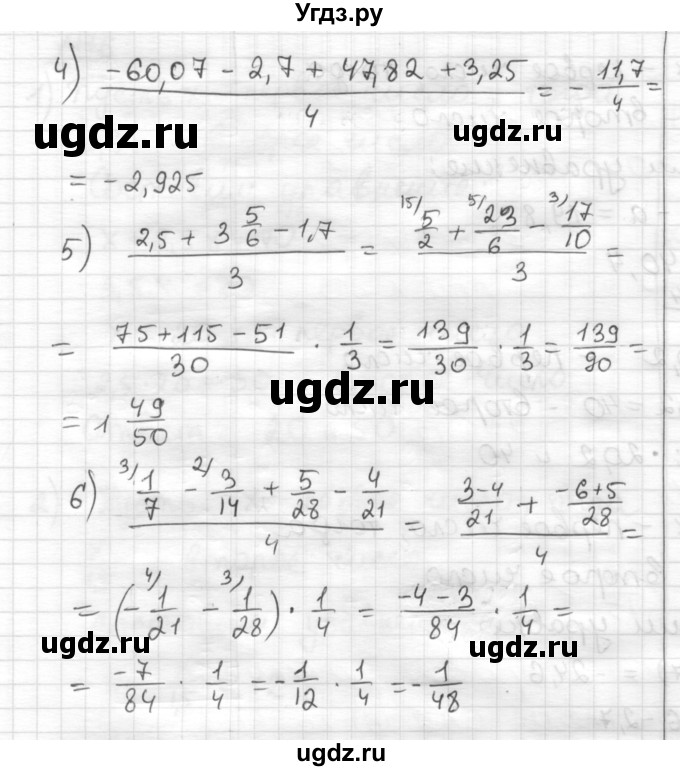 Угдз.ру
4) (-60,07 - 2,7 + 47,82 + 3,25)/4 = - 11,7/4 =
ugdz.ru ugdz.ru
= -2,925
5) (2,5 + 3 5/6 - 1,7)/3 = (15/ 5/2 + 5/ 23/6 - 3/ 17/10)/3 =
= (75+115-51)/30 · 1/3 = 139/30 · 1/3 = 139/90 =
ugdz.ru
= 1 49/50
6) (3/ 1/7 - 2/ 3/14 + 5/28 - 4/21)/4 = ((3-4)/21 + (-6+5)/28)/4 =
= (- 4/ 1/21 - 3/ 1/28) · 1/4 = (-4-3)/84 · 1/4 =
ugdz.ru ugdz.ru
= -7/84 · 1/4 = - 1/12 · 1/4 = - 1/48
ugdz.ru